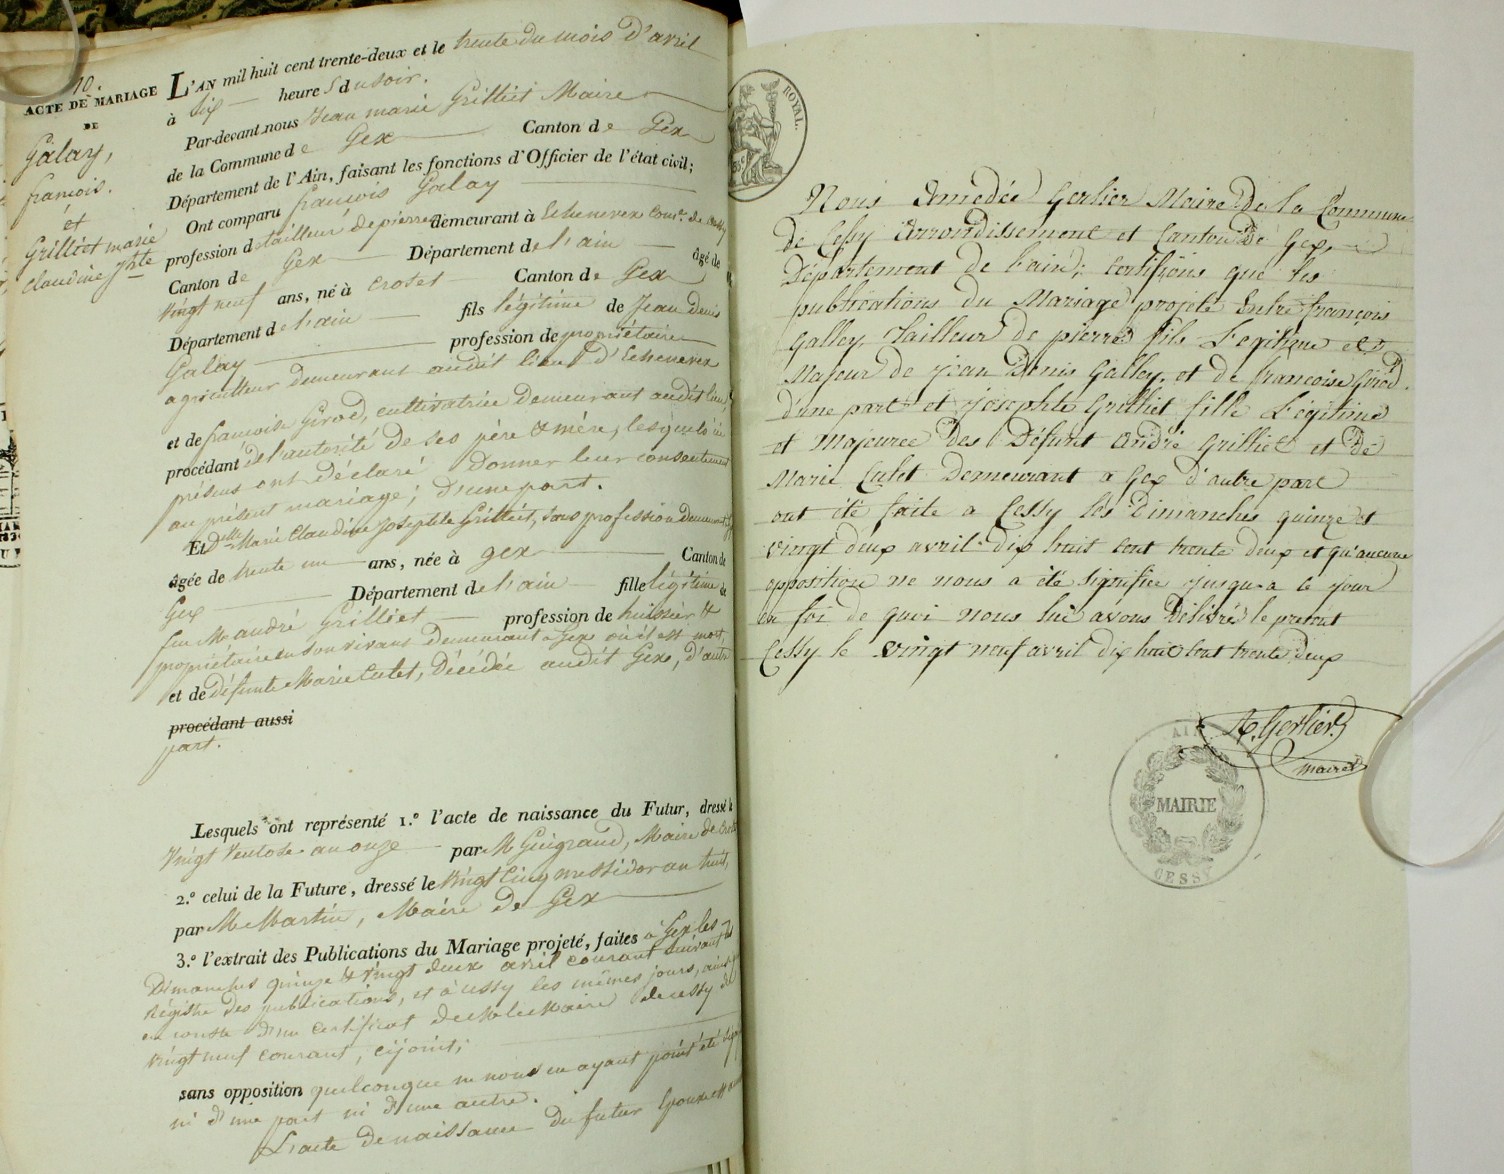 10.
ACTE DE MARIAGE
DE
Galay,
françois.
et
Grilliet marie
claudine jphte
L'AN mil huit cent trente-deux et le trente du mois d'avril
à six heures du soir.
Par-devant nous Jean marie Grilliet Maire
de la Commune de Gex Canton de Gex
Département de l'Ain, faisant les fonctions d'Officier de l'état civil;
Ont comparu françois Galay
profession de tailleur de pierre demeurant à Echenevex Comne. de Cessy
Canton de Gex Département de l'ain âgé de
vingt neuf ans, né à Crozet Canton de Gex
Département de l'ain fils légitime de Jean Denis
Galay profession de propriétaire
agriculteur demeurant audit lieu d'Echenevex
et de françoise Girod, cultivatrice demeurant audit lieu,
procédant de l'autorité de ses père & mère, lesquels ici
présens ont déclaré donner leur consentement
au présent mariage; d'une part.
Et Dlle Marie Claudine Josephte Grilliet, sans profession demeurant
âgée de trente un ans, née à Gex Canton de
Gex Département de l'ain fille légitime de
feu M. andré Grilliet profession de huissier &
propriétaire en son vivant demeurant à Gex où il est mort,
et de défunte Marie Cutet, décédée audit Gex, d'autre
procédant aussi
part.
Lesquels ont représenté 1.° l'acte de naissance du Futur, dressé le
vingt Ventose an onze par M Guigrand, Maire de Crozet
2.° celui de la Future, dressé le vingt cinq messidor an huit,
par M Martin, Maire de Gex
3.° l'extrait des Publications du Mariage projeté, faites à Gex les
Dimanches quinze & vingt deux avril courant suivant le
Régistre des publications, et à Cessy les mêmes jours, ainsi qu'il
en conste d'un certificat de M le Maire de Cessy du
vingt neuf courant, cijoint;
sans opposition quelconque ne nous en ayant point été
ni d'une part ni d'une autre.
L'acte de naissance du futur Epoux est
ROYAL.
Nous Amedée Gerlier Maire de la Commune
de Cessy Arrondissement et Canton de Gex,
Département de l'ain; certifions que les
publications du Mariage projeté Entre françois
Galley Tailleur de pierre fils Legitime et
Majeur de jean Denis Galley. et de francoise Girod.
d'une part et josephte Grilliet fille Légitime
et Majeuree des Défunt andré Grilliet et de
Marie Cutet Demeurant a Gex d'autre part
ont été faite a Cessy les Dimanches quinze et
vingt deux avril Dix huit cent trente deux et qu'aucune
opposition ne nous a été signifie jusqu-a ce jour
en foi de quoi nous lui avons Délivré le present
Cessy le vingt neuf avril dix huit cent trente deux
A. Gerlier
maire
AIN
MAIRIE
CESSY